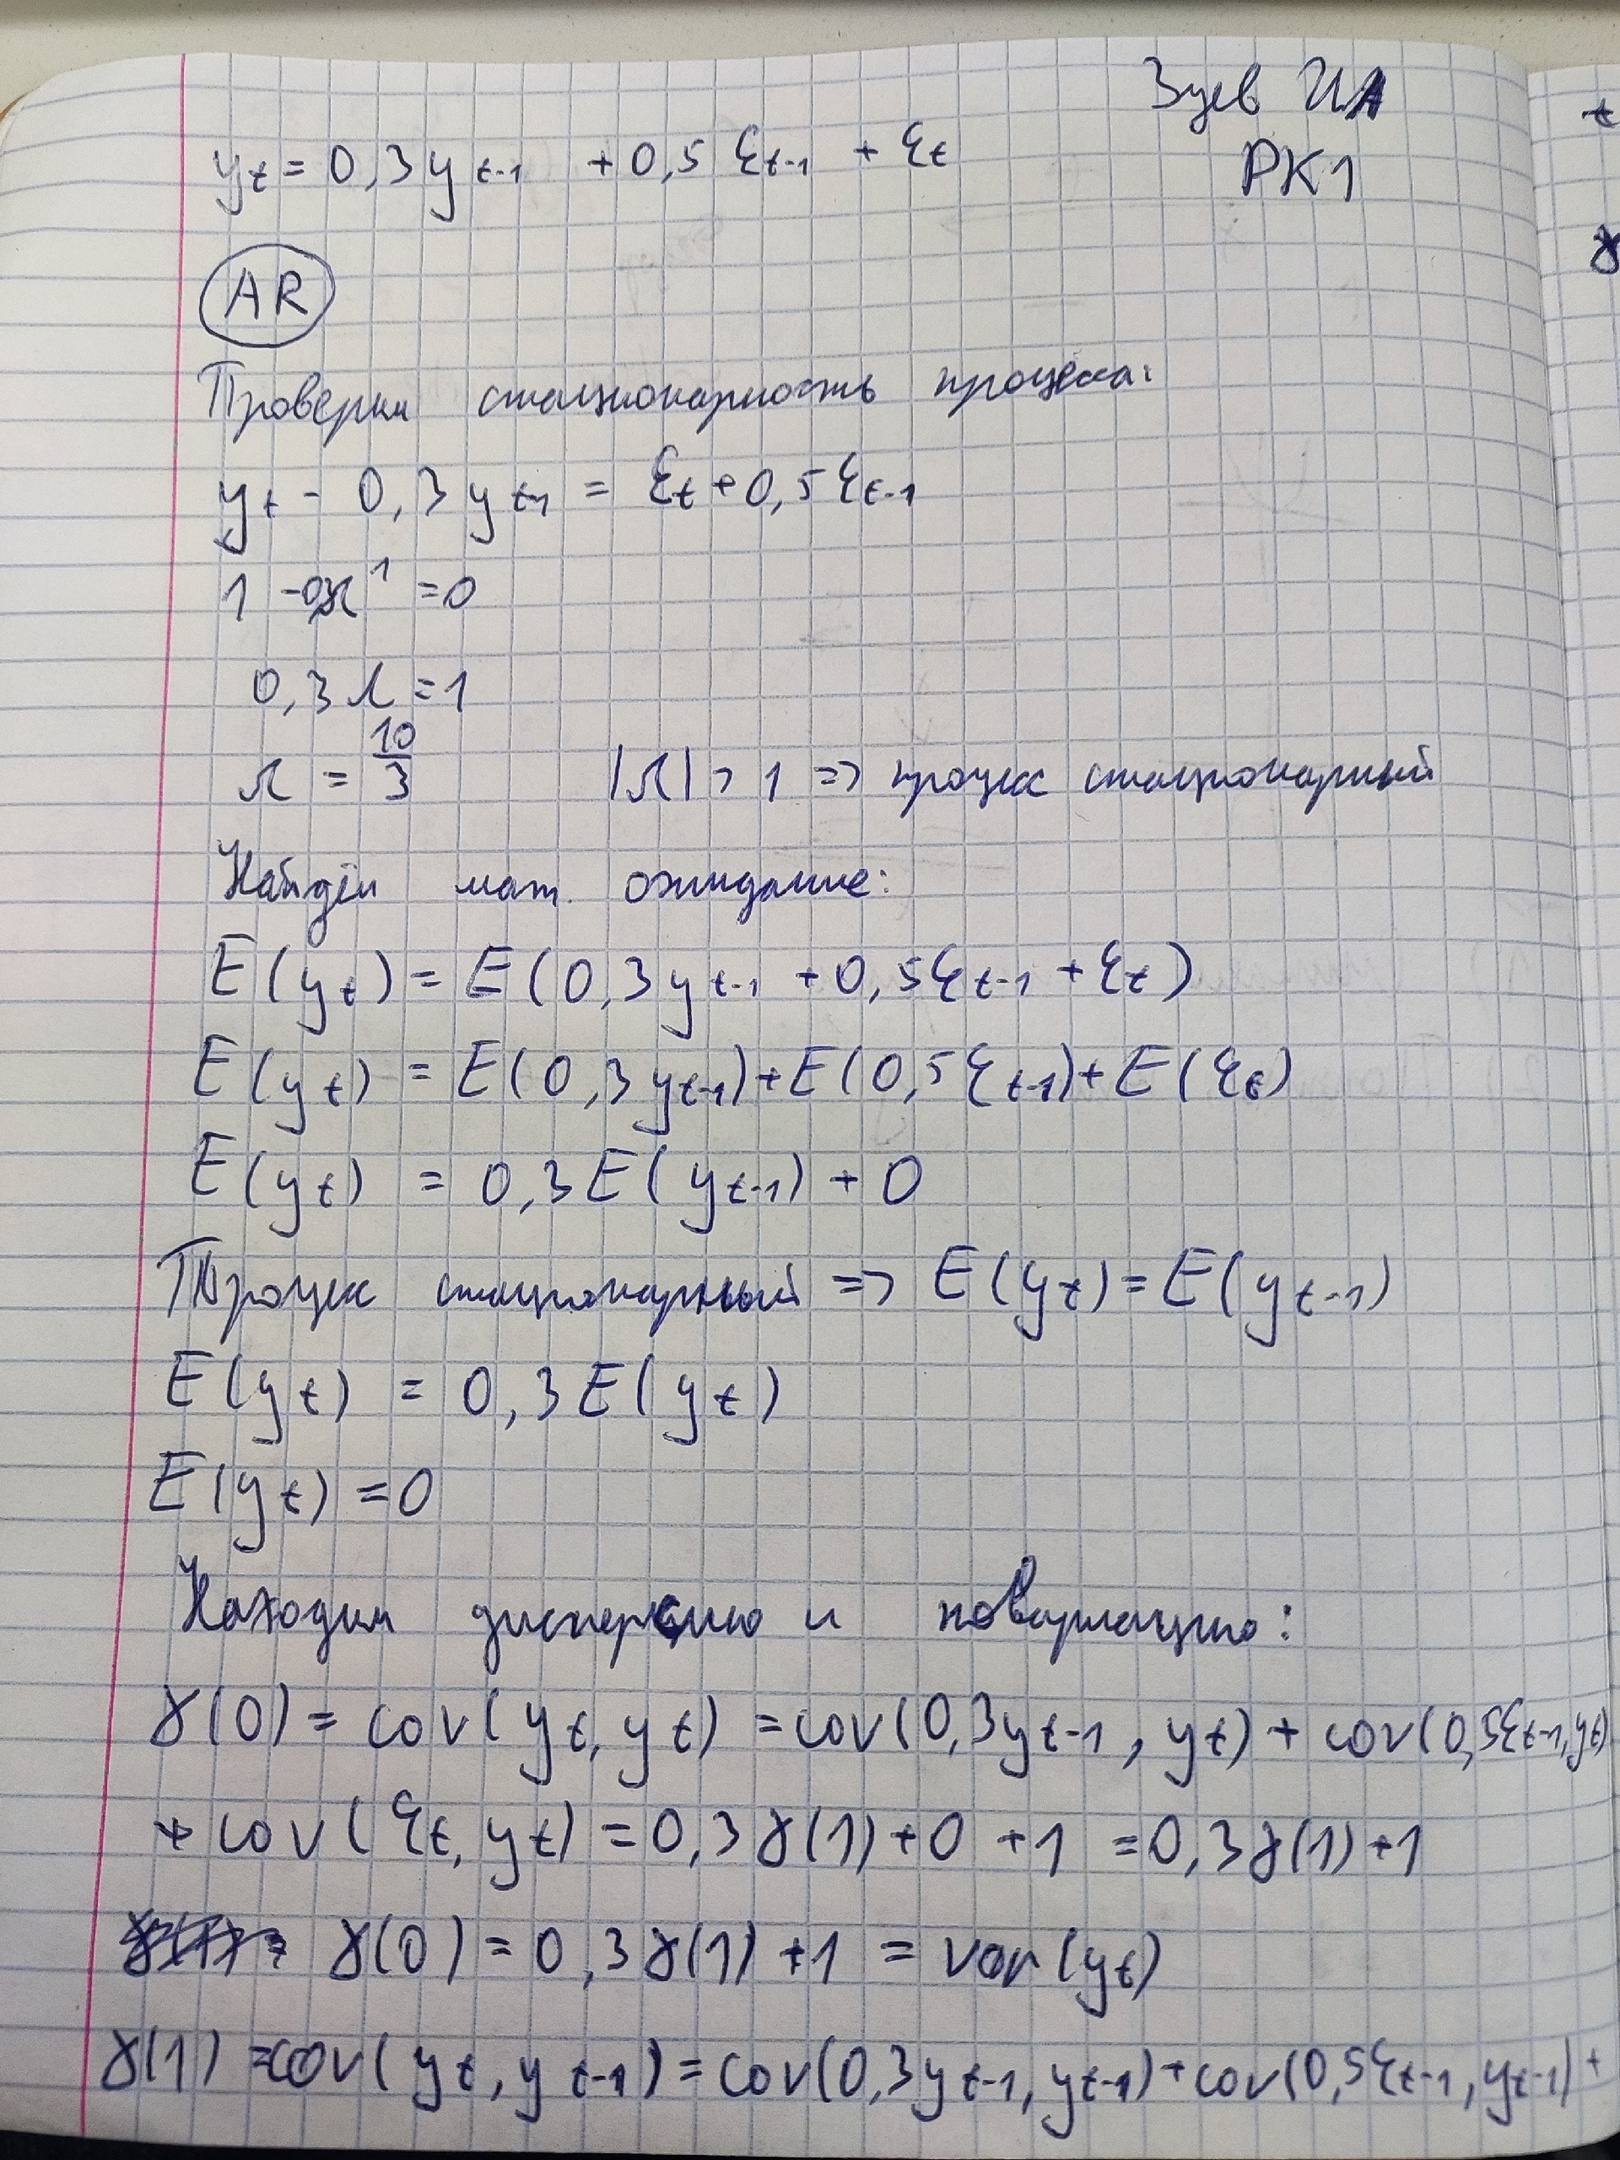 Зуев ИА
РК1
yₜ = 0,3yₜ₋₁ + 0,5 ξₜ₋₁ + ξₜ
AR
Проверим стационарность процесса:
yₜ - 0,3yₜ₋₁ = ξₜ + 0,5ξₜ₋₁
0,3λ = 1
λ = 10/3 |λ| > 1 => процесс стационарный
Найдём мат. ожидание:
E(yₜ) = E(0,3yₜ₋₁ + 0,5ξₜ₋₁ + ξₜ)
E(yₜ) = E(0,3yₜ₋₁) + E(0,5ξₜ₋₁) + E(ξₜ)
E(yₜ) = 0,3E(yₜ₋₁) + 0
Процесс стационарный => E(yₜ) = E(yₜ₋₁)
E(yₜ) = 0,3E(yₜ)
E(yₜ) = 0
Находим дисперсию и ковариацию:
γ(0) = cov(yₜ, yₜ) = cov(0,3yₜ₋₁, yₜ) + cov(0,5ξₜ₋₁, yₜ)
+ cov(ξₜ, yₜ) = 0,3γ(1) + 0 + 1 = 0,3γ(1) + 1
γ(0) = 0,3γ(1) + 1 = var(yₜ)
γ(1) = cov(yₜ, yₜ₋₁) = cov(0,3yₜ₋₁, yₜ₋₁) + cov(0,5ξₜ₋₁, yₜ₋₁) +